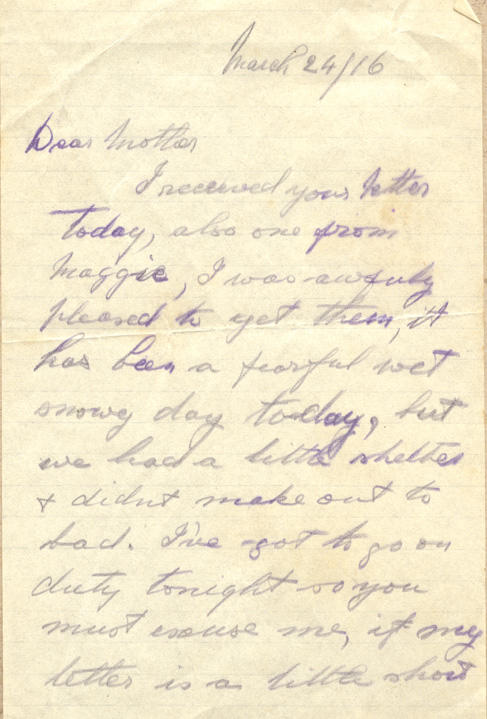 March 24/16
Dear Mother
I received your letter
today, also one from
Maggie, I was awfuly
pleased to get them, it
has been a fearful wet
snowy day today, but
we had a little shelter
& didnt make out to
bad. I've got to go on
duty tonight so you
must excuse me, if my
letter is a little short